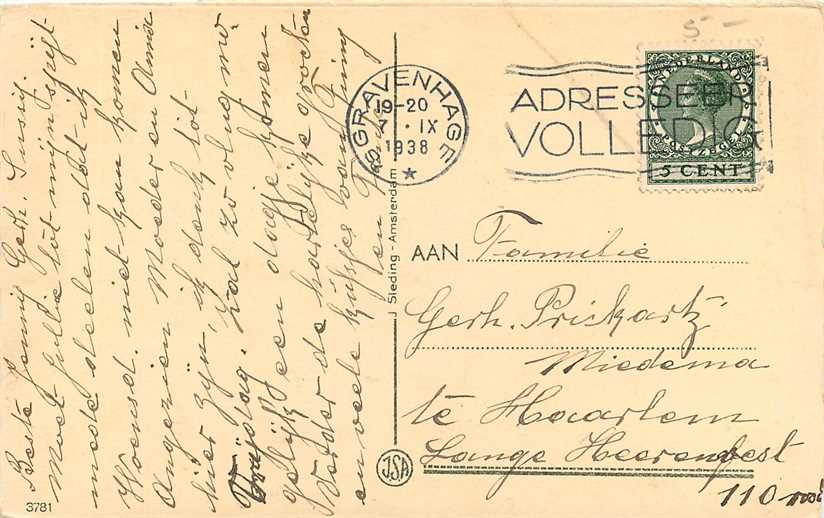 Beste Jenny Gerh. Sussy.
Moet jullie tot mijn spijt
mede deelen dat ik
Woensd. niet kan komen
Angezien Moeder en Annie
hier zijn, ik denk tot
Vrijdag. Zal zo vlug mo-
gelijk een dagje komen
Verder de hartelijke groeten
en veele kusjes van Tiny
en
'S GRAVENHAGE
19-20
7 IX
1938
ADRESSEER
VOLLEDIG
NEDERLAND
5 CENT
5 -
AAN Familie
Gerh. Priskartz
Miedema
te Haarlem
Lange Heerenvest
110 rood
J Sleding - Amsterdam
JSA
3781